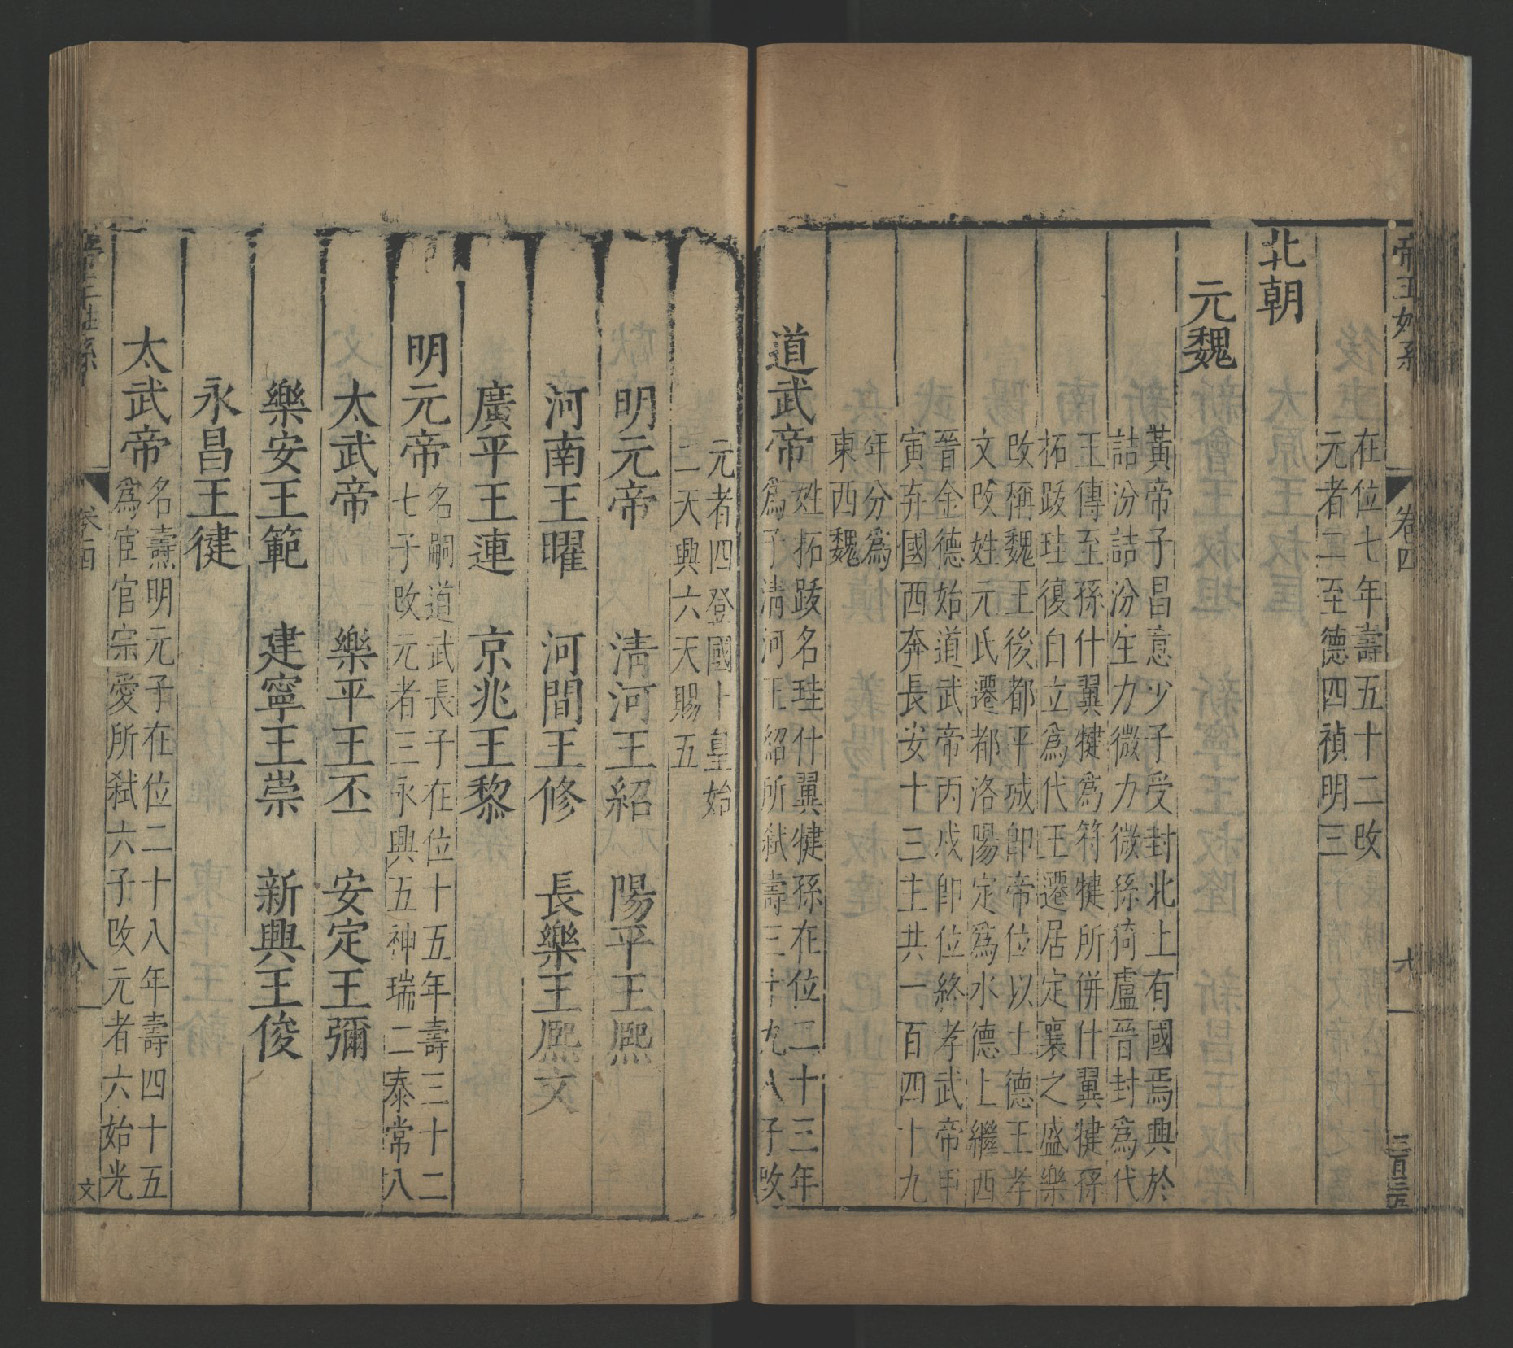 帝王姓系 卷四
在位七年壽五十二改
元者二至德四禎明三
北朝
元魏
黃帝子昌意少子受封北土有國焉興於
詰汾詰汾生力微力微孫猗盧晉封為代
王傳至孫什翼犍為符犍所併什翼犍孫
拓跋珪復自立為代王遷居定襄之盛樂
改稱魏王後都平城卽帝位以土德王孝
文改姓元氏遷都洛陽定為水德上繼西
晉金德始道武帝丙戍卽位終孝武帝甲
寅弃國西奔長安十三主共一百四十九
年分為
東西魏
道武帝
姓拓跋名珪什翼犍孫在位二十三年
為子清河王紹所弒壽三十九八子改
元者四登國十皇始
二天興六天賜五
明元帝 清河王紹 陽平王熙
河南王曜 河間王修 長樂王熈文
廣平王連 京兆王黎
明元帝
名嗣道武長子在位十五年壽三十二
七子改元者三永興五神瑞二泰常八
太武帝 樂平王丕 安定王彌
樂安王範 建寧王崇 新興王俊
永昌王健
太武帝
名燾明元子在位二十八年壽四十五
為宦官宗愛所弒六子改元者六始光
帝王姓系 卷四 八 文